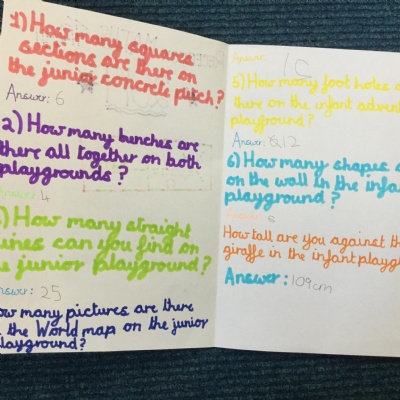 1) How many square
sections are there on
the junior concrete pitch?
Answer: 6
2) How many benches are
there all together on both
playgrounds?
Answer: 4
How many straight
lines can you find on
the junior playground?
Answer: 25
How many pictures are there
the World map on the junior
playground?
Answer:
5) How many foot holes a
there on the infant advent
playground?
Answer: 12
6) How many shapes a
on the wall in the infa
playground?
Answer: 5
How tall are you against th
giraffe in the infant playg
Answer: 109cm